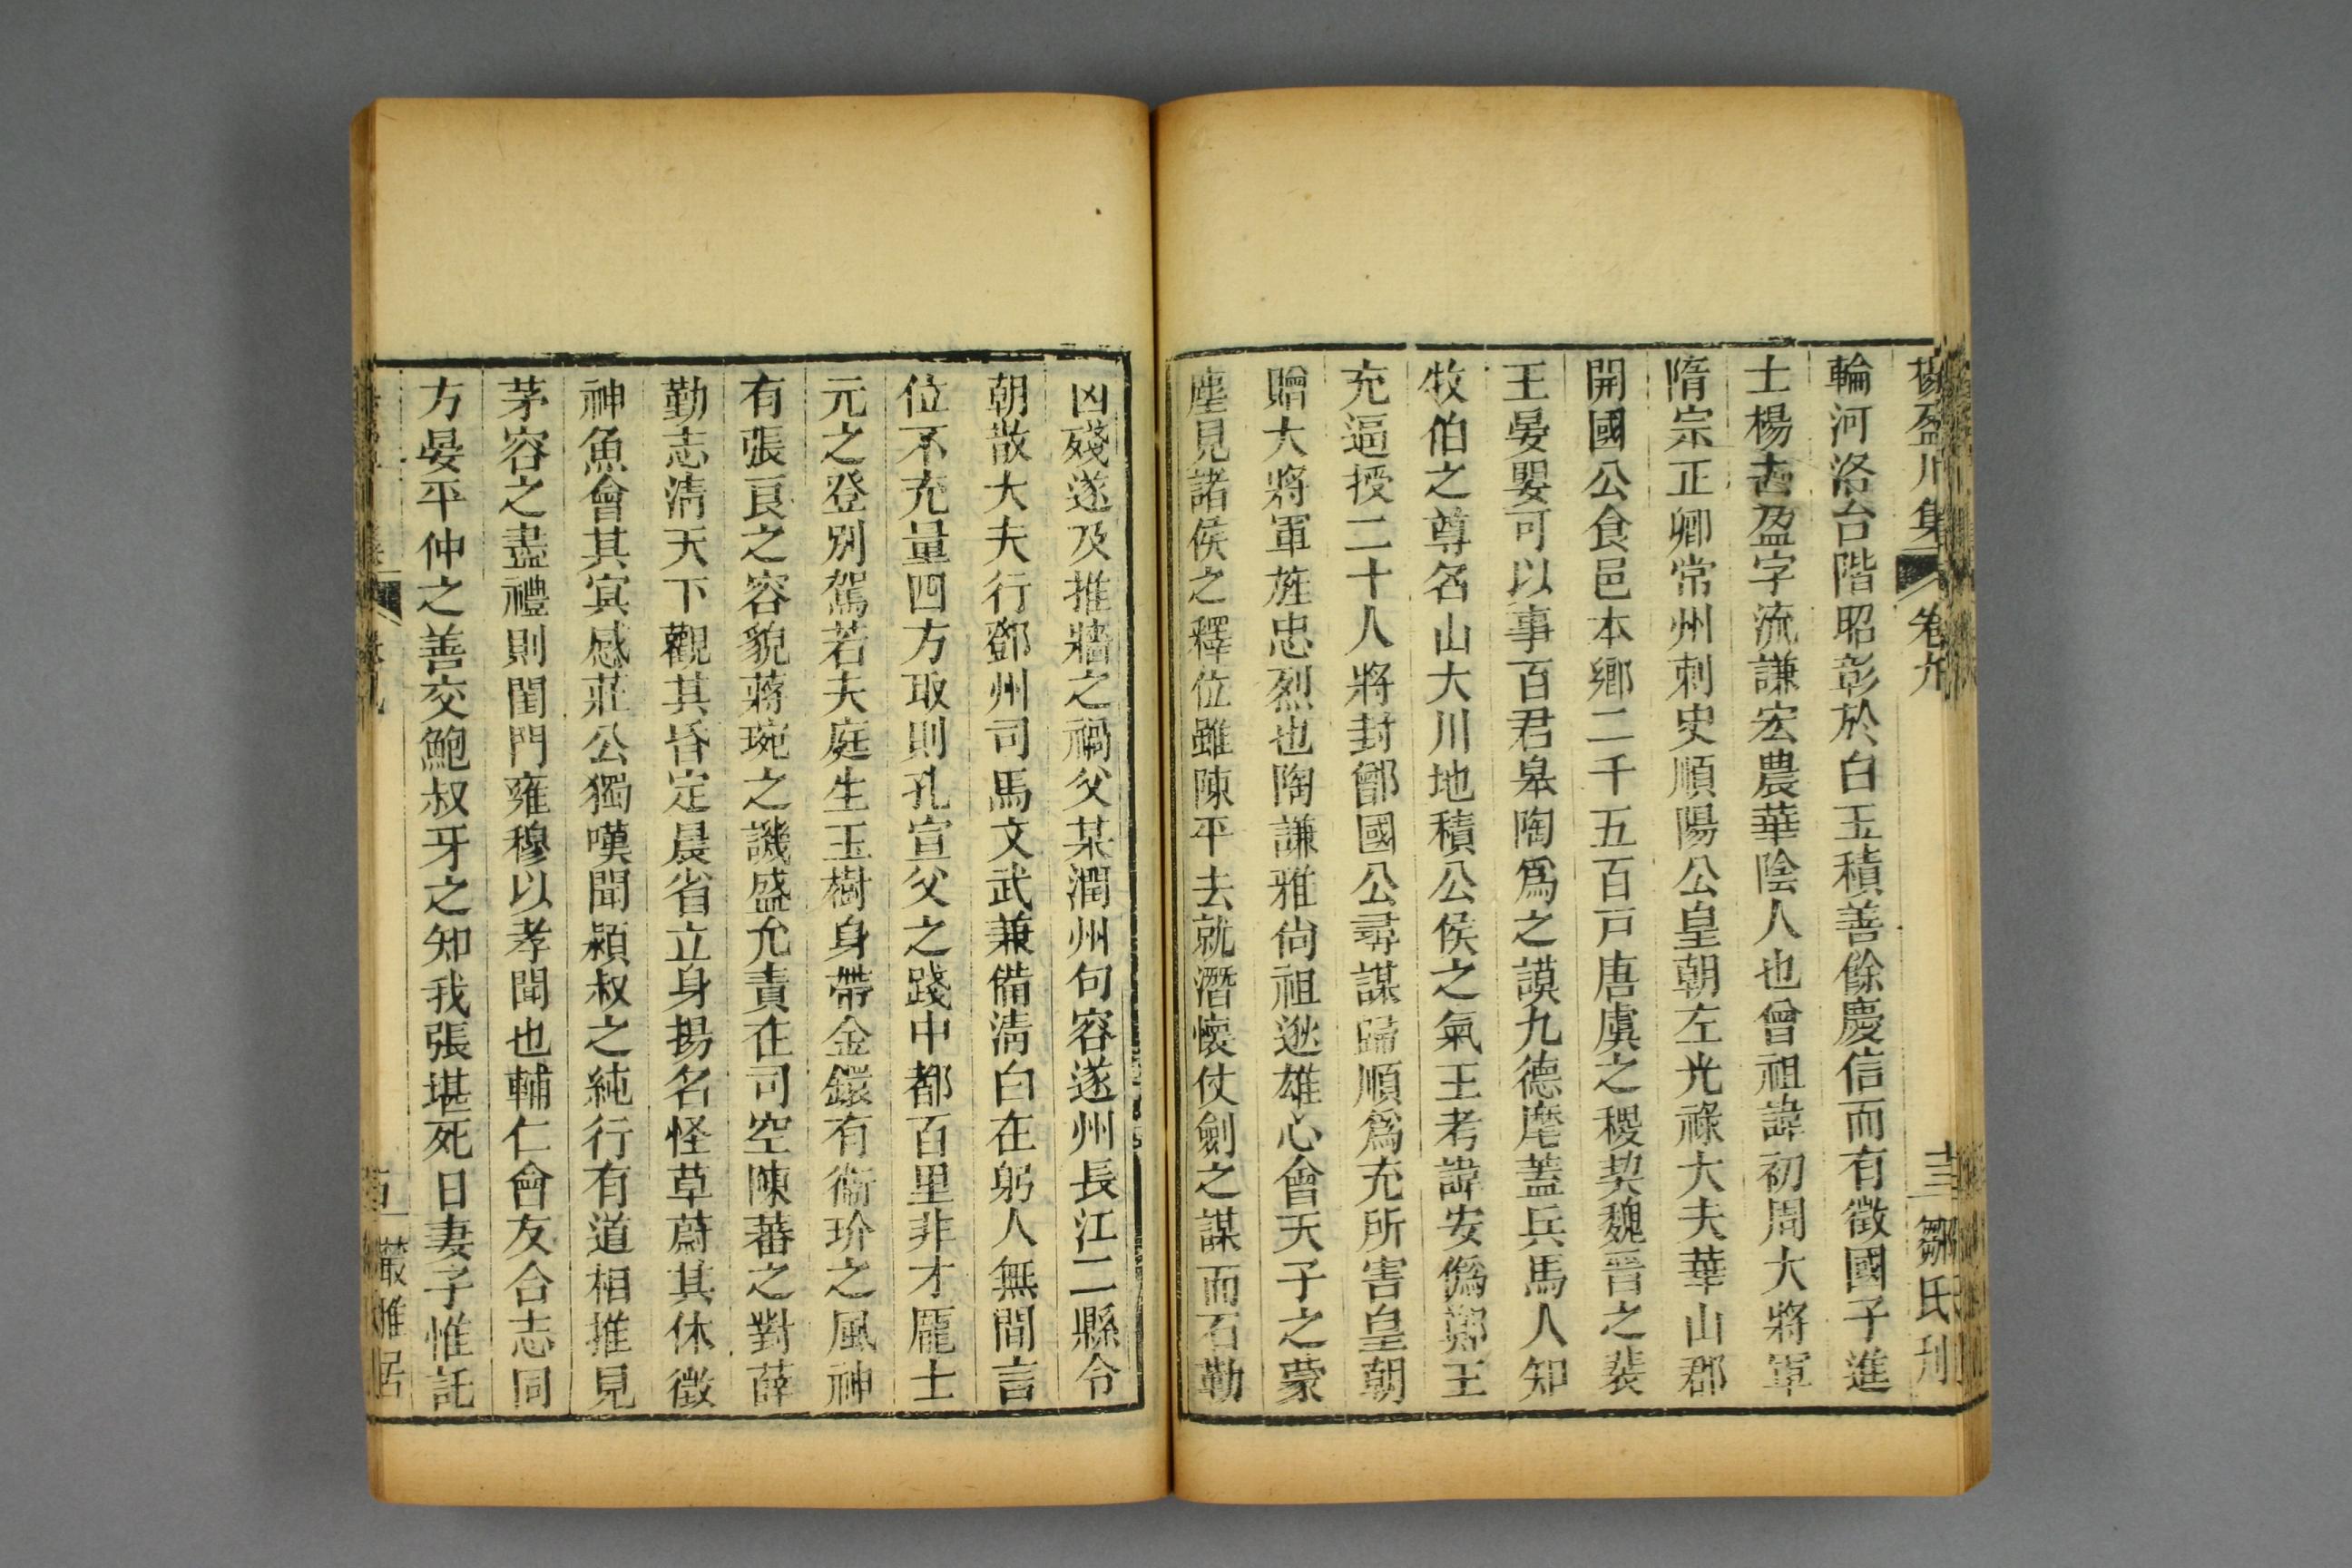 楊盈川集 卷九 十三 鄒氏刊
輪河洛台階昭彰於白玉積善餘慶信而有徵國子進
士楊去盈字流謙宏農華陰人也曾祖諱初周大將軍
隋宗正卿常州刺史順陽公皇朝左光祿大夫華山郡
開國公食邑本鄉二千五百戸唐虞之稷契魏晉之裴
王晏嬰可以事百君皋陶爲之謨九德麾蓋兵馬人知
牧伯之尊名山大川地積公侯之氣王考諱安僞鄭王
充逼授二十人將封鄫國公尋謀歸順爲充所害皇朝
贈大將軍旌忠烈也陶謙雅尙祖逖雄心會天子之蒙
塵見諸侯之釋位雖陳平去就潛懷仗劍之謀而石勒
凶殘遂及推牆之禍父某潤州句容遂州長江二縣令
朝散大夫行鄧州司馬文武兼備淸白在躬人無間言
位不充量四方取則孔宣父之踐中都百里非才龐士
元之登別駕若夫庭生玉樹身帶金鐶有衞玠之風神
有張良之容貌蔣琬之譏盛允責在司空陳蕃之對薛
勤志淸天下觀其昏定晨省立身揚名怪草蔚其休徵
神魚會其冥感莊公獨嘆聞潁叔之純行有道相推見
茅容之盡禮則閨門雍穆以孝聞也輔仁會友合志同
方晏平仲之善交鮑叔牙之知我張堪死日妻子惟託
叢雅居